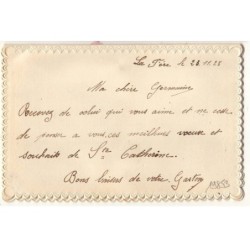 La Fère le 28.11.22
Ma chère Germaine
Recevez de celui qui vous aime et ne cesse
de penser a vous, ces meilleurs voeux et
souhait de Ste Cathérine.
Bons baisers de votre Gaston